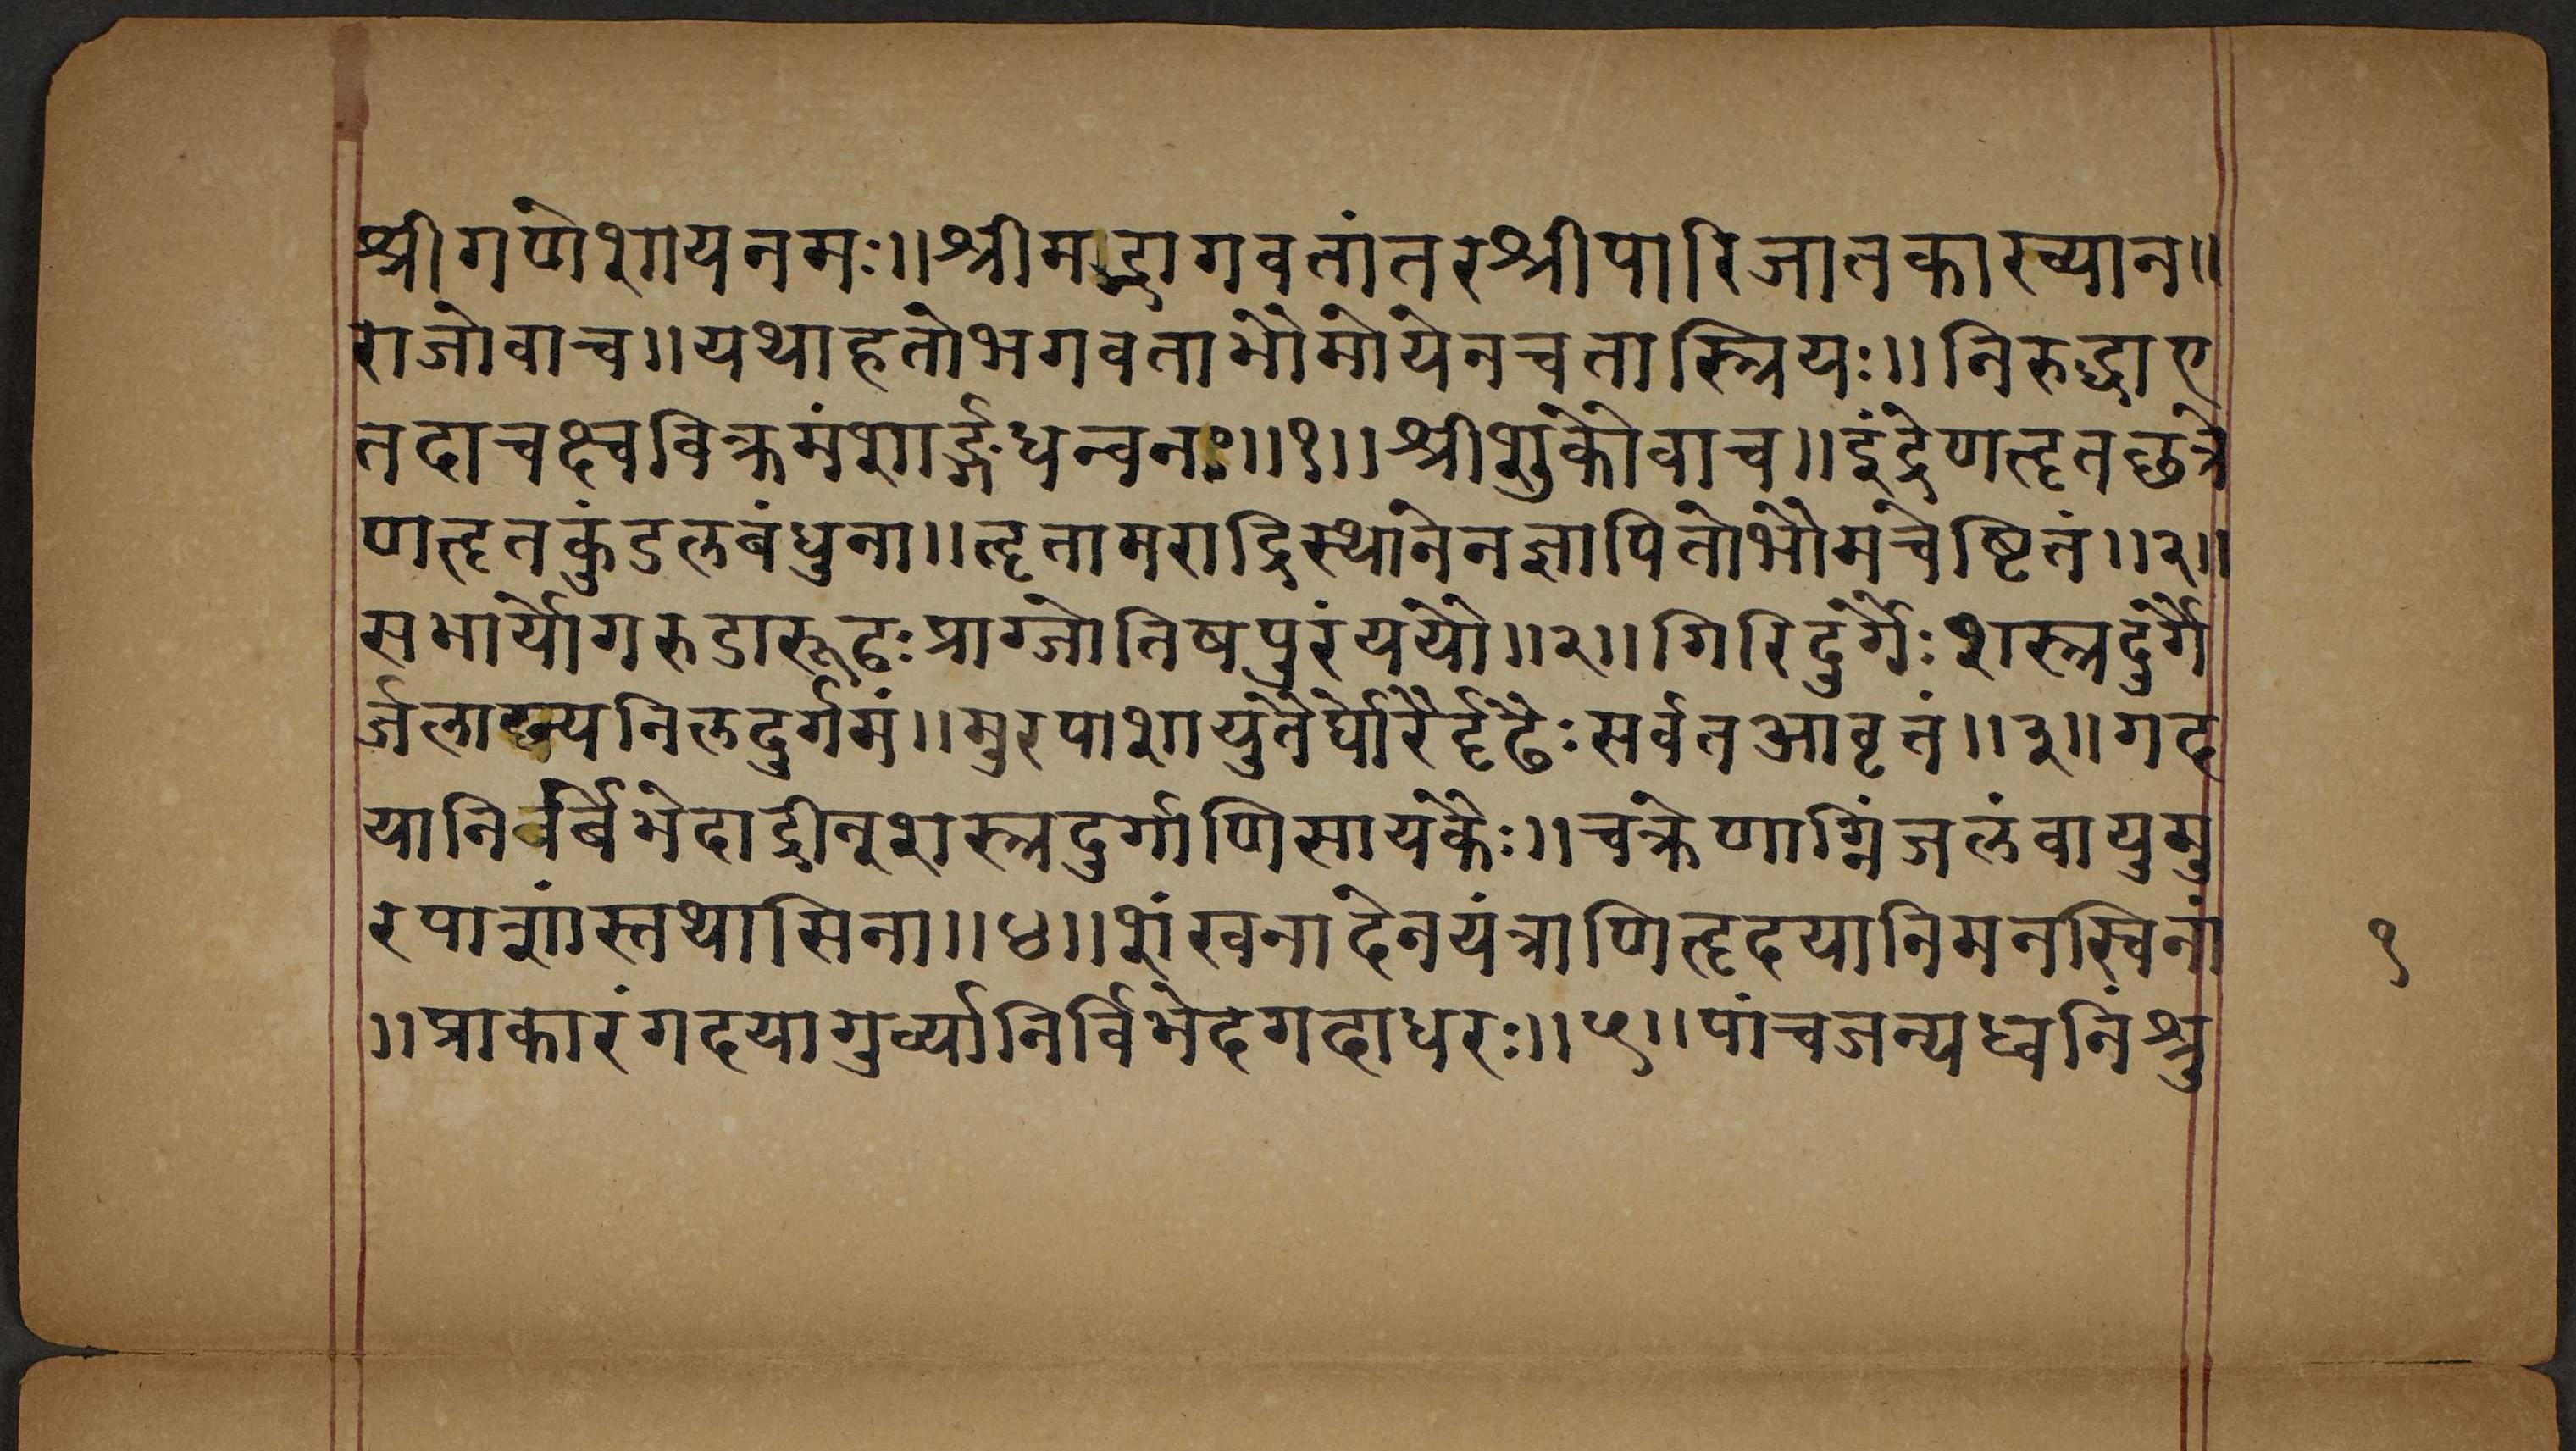 श्रीगणेशायनमः॥श्रीमद्भागवतांतरश्रीपारिजातकाख्यान॥
राजोवाच॥यथाहतोभगवताभौमोयेनचतास्त्रियः॥निरुद्धाए
तदाचक्ष्वविक्रमंशार्ङ्गधन्वनः॥१॥श्रीशुकोवाच॥इंद्रेणहृतछत्रे
णहृतकुंडलबंधुना॥हृतामराद्रिस्थानेनज्ञापितोभौमचेष्टितं॥२॥
सभार्योगरुडारूढःप्राग्जोतिषपुरंययौ॥२॥गिरिदुर्गैःशस्त्रदुर्गै
र्जलाग्न्यनिलदुर्गमं॥मुरपाशायुतैर्घोरैर्दृढैःसर्वतआवृतं॥३॥गद
यानिर्बिभेदाद्रीन्शस्त्रदुर्गाणिसायकैः॥चक्रेणाग्निंजलंवायुमु
रपाशांस्तथासिना॥४॥शंखनादेनयंत्राणिहृदयानिमनस्विनां
॥प्राकारंगदयागुर्व्यानिर्विभेदगदाधरः॥५॥पांचजन्यध्वनिंश्रु
१